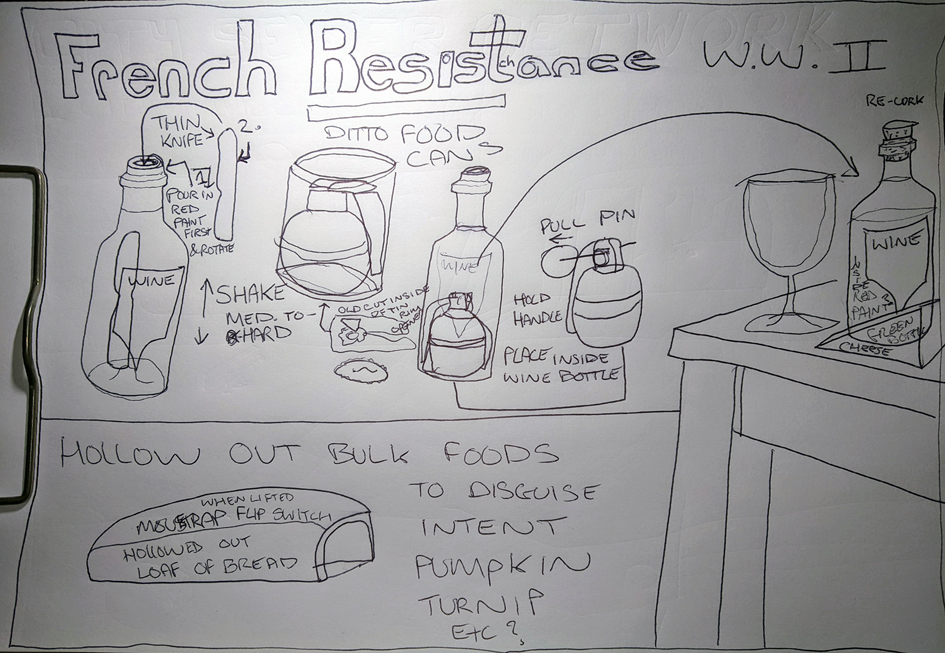 French Resistance W.W. II
RE-CORK
THIN
KNIFE
2.
DITTO FOOD
CANS
1
POUR IN
RED
PAINT
FIRST
& ROTATE
WINE
SHAKE
MED. TO
HARD
OLD CUT INSIDE
WINE
PULL PIN
HOLD
HANDLE
PLACE INSIDE
WINE BOTTLE
WINE
INSIDE
RED
PAINT
GREEN
BOTTLE
CHEESE
HOLLOW OUT BULK FOODS
TO DISGUISE
INTENT
PUMPKIN
TURNIP
ETC?
WHEN LIFTED
MOUSTRAP FLIP SWITCH
HOLLOWED OUT
LOAF OF BREAD